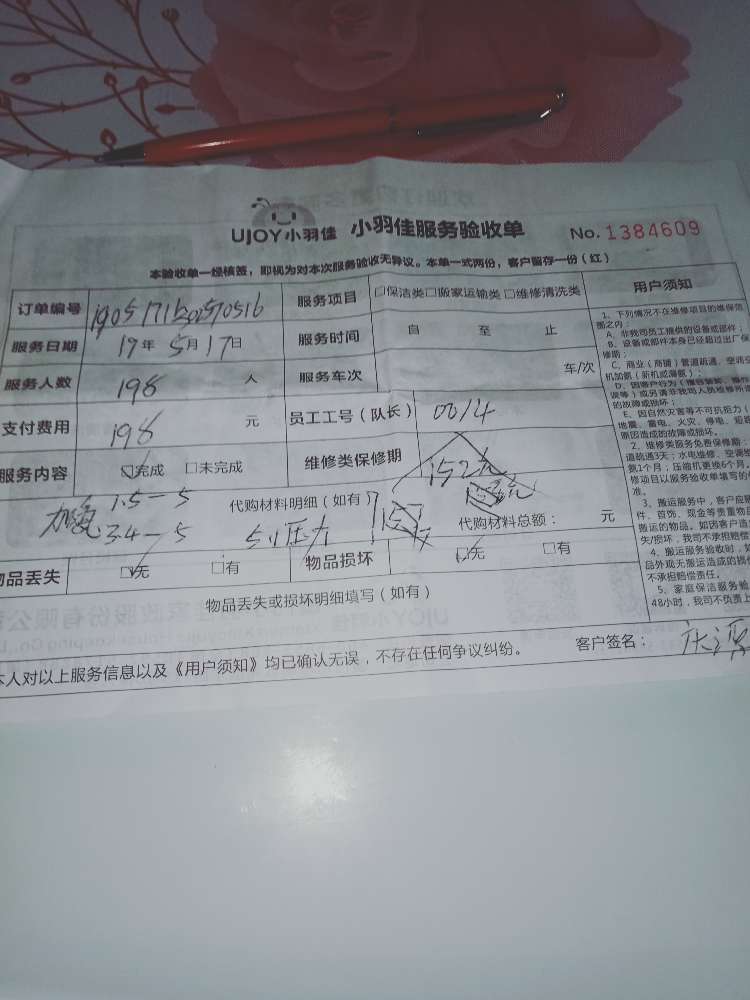 UJOY小羽佳 小羽佳服务验收单 No. 1384609
本验收单一经核签,即视为对本次服务验收无异议。本单一式两份,客户留存一份(红)
订单编号 服务项目 □保洁类□搬家运输类□维修清洗类
服务日期 19年 5月17日 服务时间 自 至 止
服务人数 198 人 服务车次 车/次
支付费用 198 元 员工工号(队长) 0014
服务内容 ☑完成 □未完成 维修类保修期 152元
1.5-5 代购材料明细(如有)
34-5 压力 代购材料总额: 元
物品丢失 ☑无 □有 物品损坏 ☑无 □有
物品丢失或损坏明细填写(如有)
本人对以上服务信息以及《用户须知》均已确认无误,不存在任何争议纠纷。 客户签名:
用户须知
1、下列情况不在维修项目的维保范
围之内:
A、非我司员工提供的设备或部件;
B、设备或部件本身已经超过出厂保
修期;
C、商业(商铺)管道疏通、空调
机加氨(新机或漏氨);
误等)或另请非我司人员检修所
的故障或损坏;
E、因自然灾害等不可抗拒力(
地震、雷电、火灾、停电、
原因造成的故障或损坏。
2、维修类服务免费保修期:
道疏通3天;水电维修、空调
氨1个月;压油机更换6个月。
修项目以服务验收单填写的
准。
3、搬运服务中,客户应
件、首饰、现金等贵重物
搬运的物品。如因客户
失/损坏,我司不承担赔偿
4、搬运服务验收时,如
品外观无搬运造成的损
不承担赔偿责任。
5、家庭保洁服务验
48小时,我司不负责